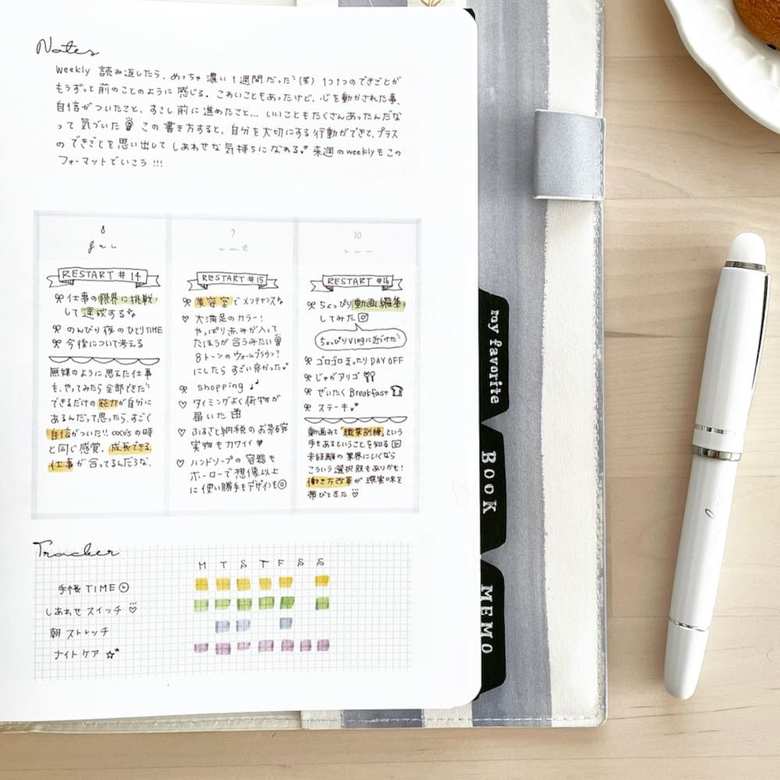 Notes
Weekly 読み返したら、めっちゃ濃い1週間だった(笑) 1つ1つのできごとが
もうずっと前のことのように感じる。こわいこともあったけど、心を動かされた事、
自信がついたこと、すこし前に進めたこと… いいこともたくさんあったんだな
って気づいた この書き方すると、自分を大切にする行動ができて、プラス
のできごとを思い出してしあわせな気持ちになれる 来週のweeklyもこの
フォーマットでいこう!!!
8
RESTART #14
仕事の限界に挑戦
して達成する
のんびり夜のひとりTIME
今後について考える
無謀のように思えた仕事
を、やってみたら全部できた
できるだけの能力が自分に
あるんだって思ったら、すごく
自信がついた!! cocoの時
と同じ感覚。成長できる
仕事が合ってるんだろな。
9
RESTART #15
美容室でメンテナンス
大満足のカラー!
やっぱり赤みが入って
たほうが合うみたい
8トーンのウォームブラウン!
にしたらすごい良かった
shopping
タイミングよく荷物が
届いた
ふるさと納税のお茶碗
実物もカワイイ
ハンドソープの容器も
ホーローで想像以上
に使い勝手もデザインも
10
RESTART #16
ちょっぴり動画編集
してみた
ちょっぴりVlogに近づけた
ゴロゴロまったりDAY OFF
じゃがアリゴ
ぜいたくBreakfast
ステーキ
動画みて"職業訓練"という
手もあるということを知る
未経験の業界にいくなら
こういう選択肢もありかも!
働き方改革が現実味を
帯びてきた
Tracker
M T S T F S S
手帳TIME
しあわせスイッチ
朝ストレッチ
ナイトケア
my favorite
BOOK
MEMO